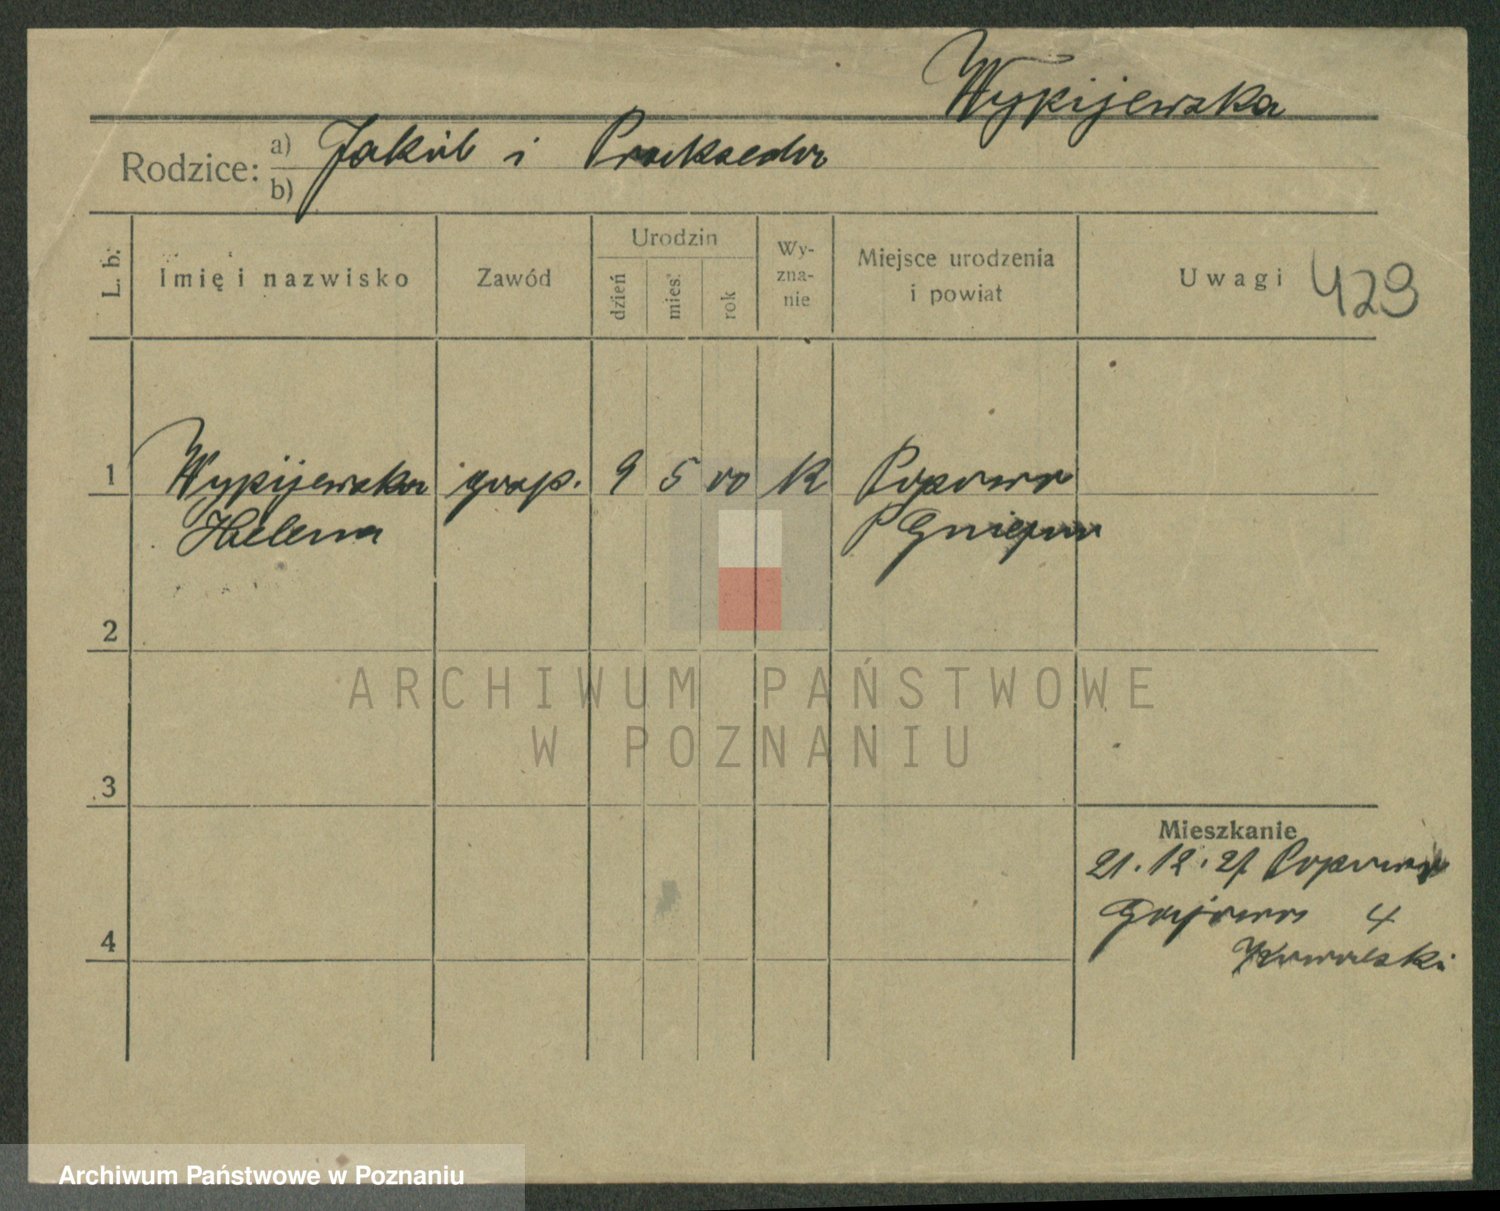 Wypijewska
Rodzice: a) Jakub i Prakseda
b)
L. b.
Imię i nazwisko
Zawód
Urodzin
dzień
mies.
rok
Wy-
zna-
nie
Miejsce urodzenia
i powiat
Uwagi 429
1 Wypijewska gosp. 9 5 00 K
Helena
2
3
4
Mieszkanie
21.12.21
4
Kowalski
ARCHIWUM PAŃSTWOWE
W POZNANIU
Archiwum Państwowe w Poznaniu